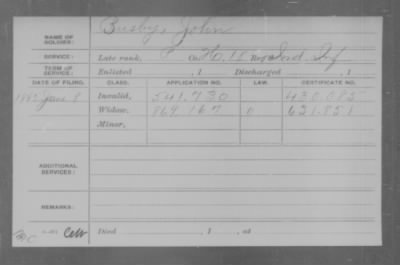 NAME OF SOLDIER: Busby, John
SERVICE: Late rank, Co. H, 18 Reg't Ind. Inf
TERM OF SERVICE: Enlisted , 1 Discharged , 1
DATE OF FILING. CLASS. APPLICATION NO. LAW. CERTIFICATE NO.
Jan 8 Invalid, 541,730 430,085
Widow, 869,167 631,851
Minor,
ADDITIONAL SERVICES:
REMARKS:
Died , 1 , at